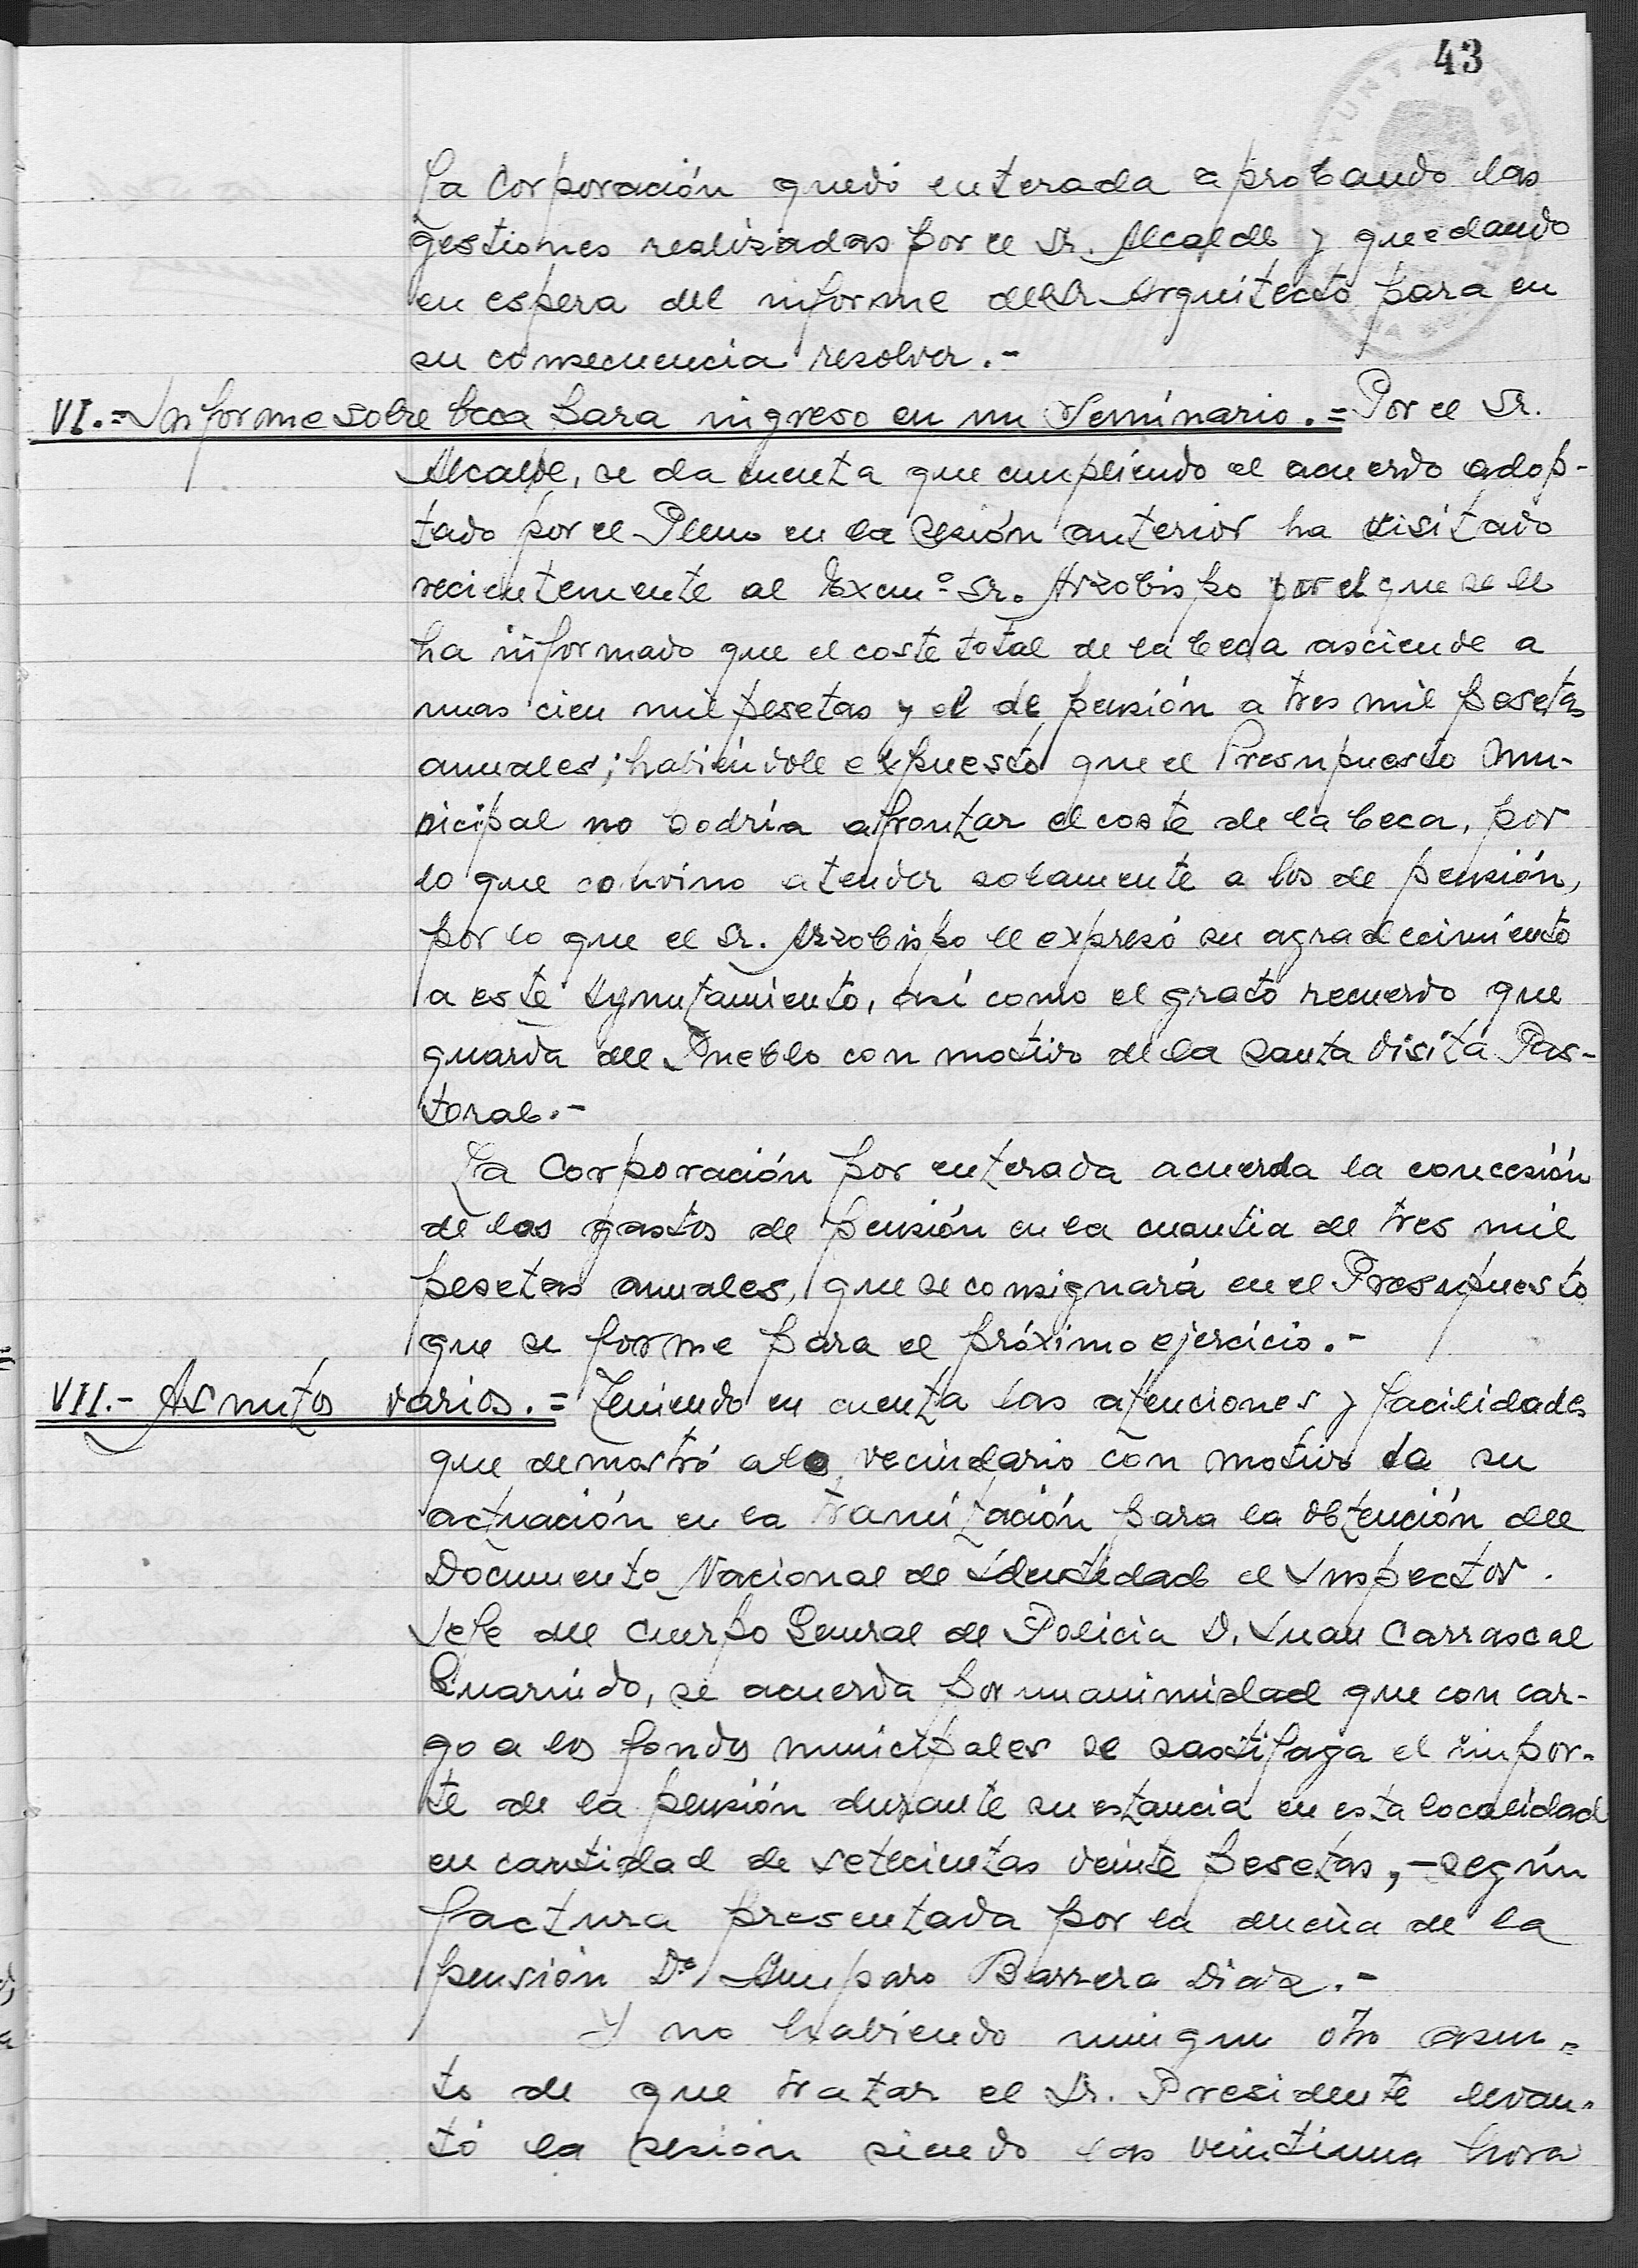 43
La Corporación quedó enterada aprobando las
gestiones realizadas por el Sr. Alcalde y quedando
en espera del informe del Sr. Arquitecto para en
su consecuencia resolver.-
VI.=Informe sobre beca para ingreso en un Seminario.= Por el Sr.
Alcalde, se da cuenta que cumpliendo el acuerdo adop-
tado por el Pleno en la sesión anterior ha visitado
recientemente al Excmº Sr. Arzobispo por el que se le
ha informado que el coste total de la beca asciende a
unas cien mil pesetas y el de pensión a tres mil pesetas
anuales; habiéndole expuesto que el Presupuesto Mu-
nicipal no podría afrontar el coste de la beca, por
lo que convino atender solamente a los de pensión,
por lo que el Sr. Arzobispo le expresó su agradecimiento
a este Ayuntamiento, así como el grato recuerdo que
guarda del Pueblo con motivo de la Santa Visita Pas-
toral.-
La Corporación por enterada acuerda la concesión
de los gastos de pensión en la cuantía de tres mil
pesetas anuales, que se consignará en el Presupuesto
que se forme para el próximo ejercicio.-
VII.- Asuntos varios.= Teniendo en cuenta las atenciones y facilidades
que demostró al vecindario con motivo de su
actuación en la tramitación para la obtención del
Documento Nacional de Identidad el Inspector
Jefe del Cuerpo General de Policía D. Juan Carrascal
Guarnido, se acuerda por unanimidad que con car-
go a los fondos municipales se sastifaga el impor-
te de la pensión durante su estancia en esta localidad
en cantidad de setecientas veinte pesetas, -según
factura presentada por la dueña de la
pensión Dª Amparo Barrera Diaz.-
Y no habiendo ningun otro asun-
to de que tratar el Sr. Presidente levan-
tó la sesión siendo las veintiuna hora